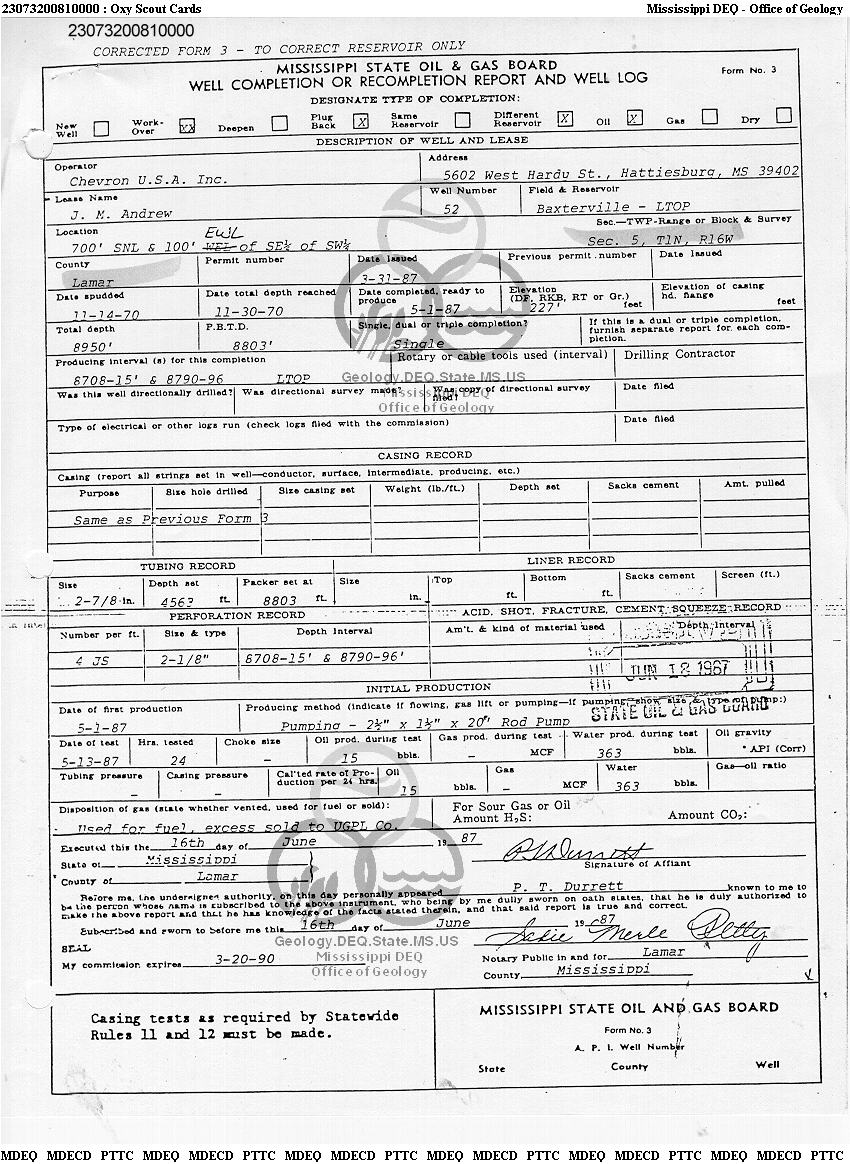 23073200810000 : Oxy Scout Cards Mississippi DEQ - Office of Geology
23073200810000
CORRECTED FORM 3 - TO CORRECT RESERVOIR ONLY
MISSISSIPPI STATE OIL & GAS BOARD
WELL COMPLETION OR RECOMPLETION REPORT AND WELL LOG
Form No. 3
DESIGNATE TYPE OF COMPLETION:
New Well Work-Over XX Deepen Plug Back X Same Reservoir Different Reservoir X Oil X Gas Dry
DESCRIPTION OF WELL AND LEASE
Operator Address
Chevron U.S.A. Inc. 5602 West Hardy St., Hattiesburg, MS 39402
Lease Name Well Number Field & Reservoir
J. M. Andrew 52 Baxterville - LTOP
Location EWL Sec.—TWP-Range or Block & Survey
700' SNL & 100' WEL of SE¼ of SW¼ Sec. 5, T1N, R16W
County Permit number Date Issued Previous permit number Date Issued
Lamar 3-31-87
Date spudded Date total depth reached Date completed, ready to produce Elevation (DF, RKB, RT or Gr.) Elevation of casing hd. flange
11-14-70 11-30-70 5-1-87 227' feet feet
Total depth P.B.T.D. Single, dual or triple completion? If this is a dual or triple completion, furnish separate report for each completion.
8950' 8803' Single
Producing interval (s) for this completion Rotary or cable tools used (interval) Drilling Contractor
8708-15' & 8790-96 LTOP
Geology.DEQ.State.MS.US
Was this well directionally drilled? Was directional survey made? Was copy of directional survey filed? Date filed
Mississippi DEQ
Office of Geology
Type of electrical or other logs run (check logs filed with the commission) Date filed
CASING RECORD
Casing (report all strings set in well—conductor, surface, intermediate, producing, etc.)
Purpose Size hole drilled Size casing set Weight (lb./ft.) Depth set Sacks cement Amt. pulled
Same as Previous Form 3
TUBING RECORD LINER RECORD
Size Depth set Packer set at Size Top Bottom Sacks cement Screen (ft.)
2-7/8 in. 4563 ft. 8803 ft. in. ft. ft.
PERFORATION RECORD ACID, SHOT, FRACTURE, CEMENT SQUEEZE RECORD
Number per ft. Size & type Depth Interval Am't. & kind of material used Depth Interval
4 JS 2-1/8" 8708-15' & 8790-96'
JUN 18 1987
STATE OIL & GAS BOARD
INITIAL PRODUCTION
Date of first production Producing method (indicate if flowing, gas lift or pumping—if pumping, show size & type of pump:)
5-1-87 Pumping - 2½" x 1½" x 20' Rod Pump
Date of test Hrs. tested Choke size Oil prod. during test Gas prod. during test Water prod. during test Oil gravity
5-13-87 24 - 15 bbls. - MCF 363 bbls. ° API (Corr)
Tubing pressure Casing pressure Cal'ted rate of Production per 24 hrs. Oil Gas Water Gas—oil ratio
- - 15 bbls. - MCF 363 bbls.
Disposition of gas (state whether vented, used for fuel or sold): For Sour Gas or Oil
Amount H₂S: Amount CO₂:
Used for fuel, excess sold to UGPL Co.
Executed this the 16th day of June 19 87
State of Mississippi
County of Lamar
Signature of Affiant
Before me, the undersigned authority, on this day personally appeared P. T. Durrett known to me to
be the person whose name is subscribed to the above instrument, who being by me dully sworn on oath states, that he is duly authorized to
make the above report and that he has knowledge of the facts stated therein, and that said report is true and correct.
Subscribed and sworn to before me this 16th day of June 19 87
SEAL
Geology.DEQ.State.MS.US
Sadie Merle Petty
My commission expires 3-20-90
Mississippi DEQ
Office of Geology
Notary Public in and for Lamar
County, Mississippi
Casing tests as required by Statewide
Rules 11 and 12 must be made.
MISSISSIPPI STATE OIL AND GAS BOARD
Form No. 3
A. P. I. Well Number
State County Well
MDEQ MDECD PTTC MDEQ MDECD PTTC MDEQ MDECD PTTC MDEQ MDECD PTTC MDEQ MDECD PTTC MDEQ MDECD PTTC